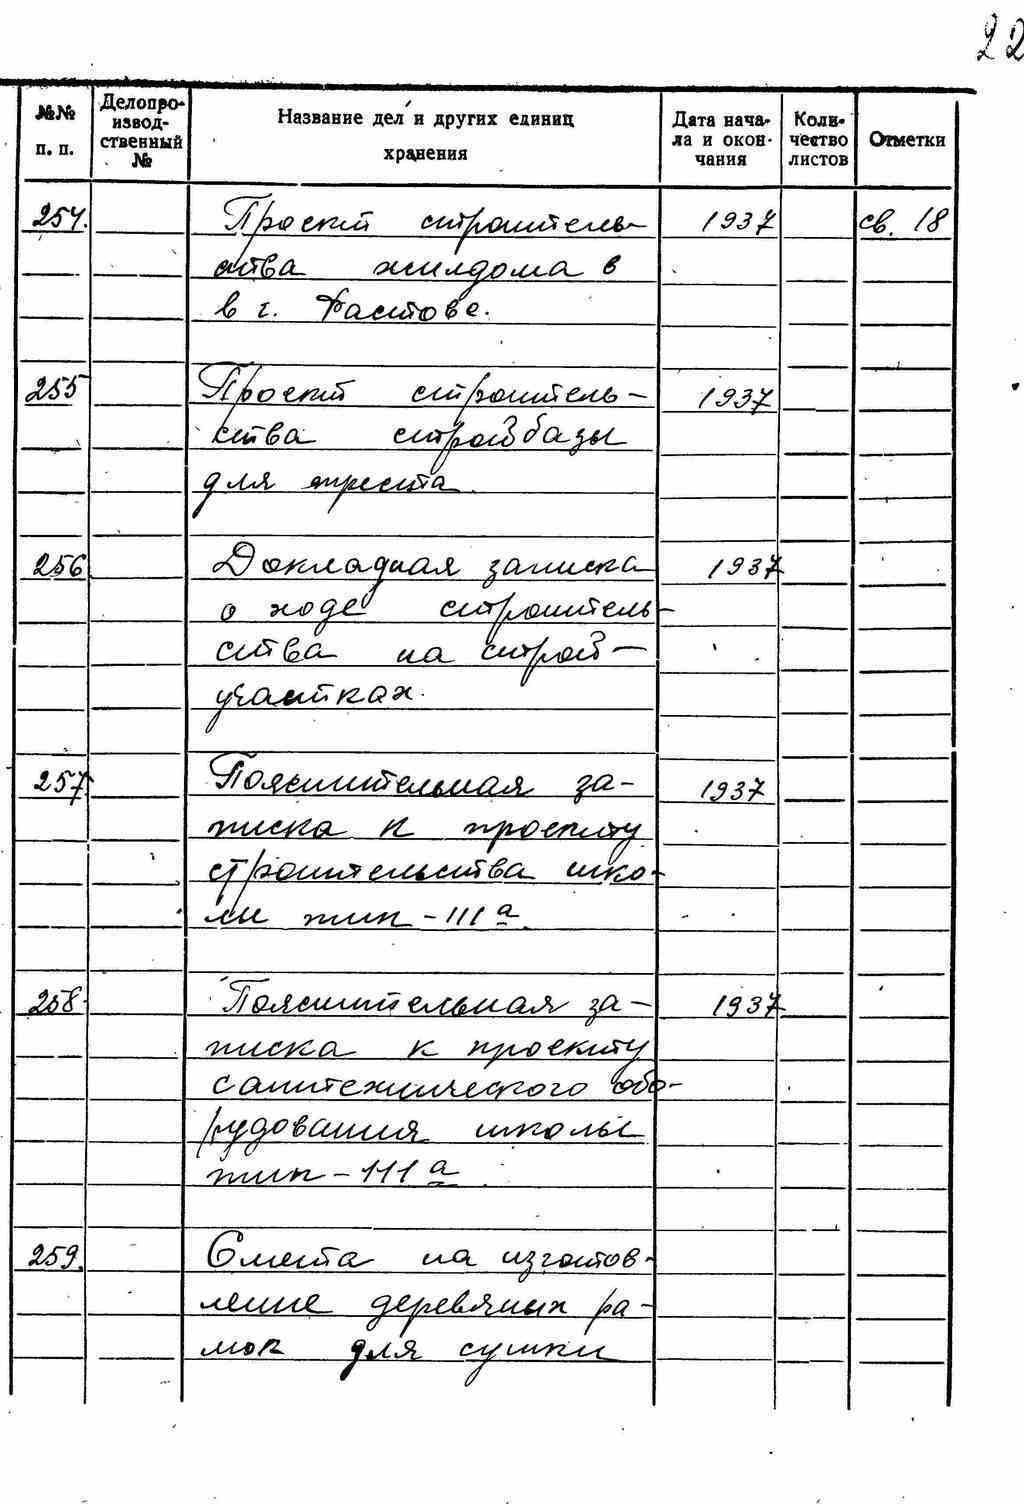 22
№№ п. п.
Делопроизвод-ственный №
Название дел и других единиц хранения
Дата нача-ла и окон-чания
Коли-чество листов
Отметки
254. Проект строитель- 1937 св. 18
ства жилдома в
в г. Фастове.
255 Проект строитель- 1937
ства стройбазы
для треста.
256 Докладная записка 1937
о ходе строитель-
ства на строй-
участках.
257 Пояснительная за- 1937
писка к проекту
строительства шко-
лы тип-IIIа.
258. Пояснительная за- 1937
писка к проекту
санитехнического обо-
рудования школы
тип-IIIа.
259. Смета на изготов-
ление деревяных ра-
мок для сушки